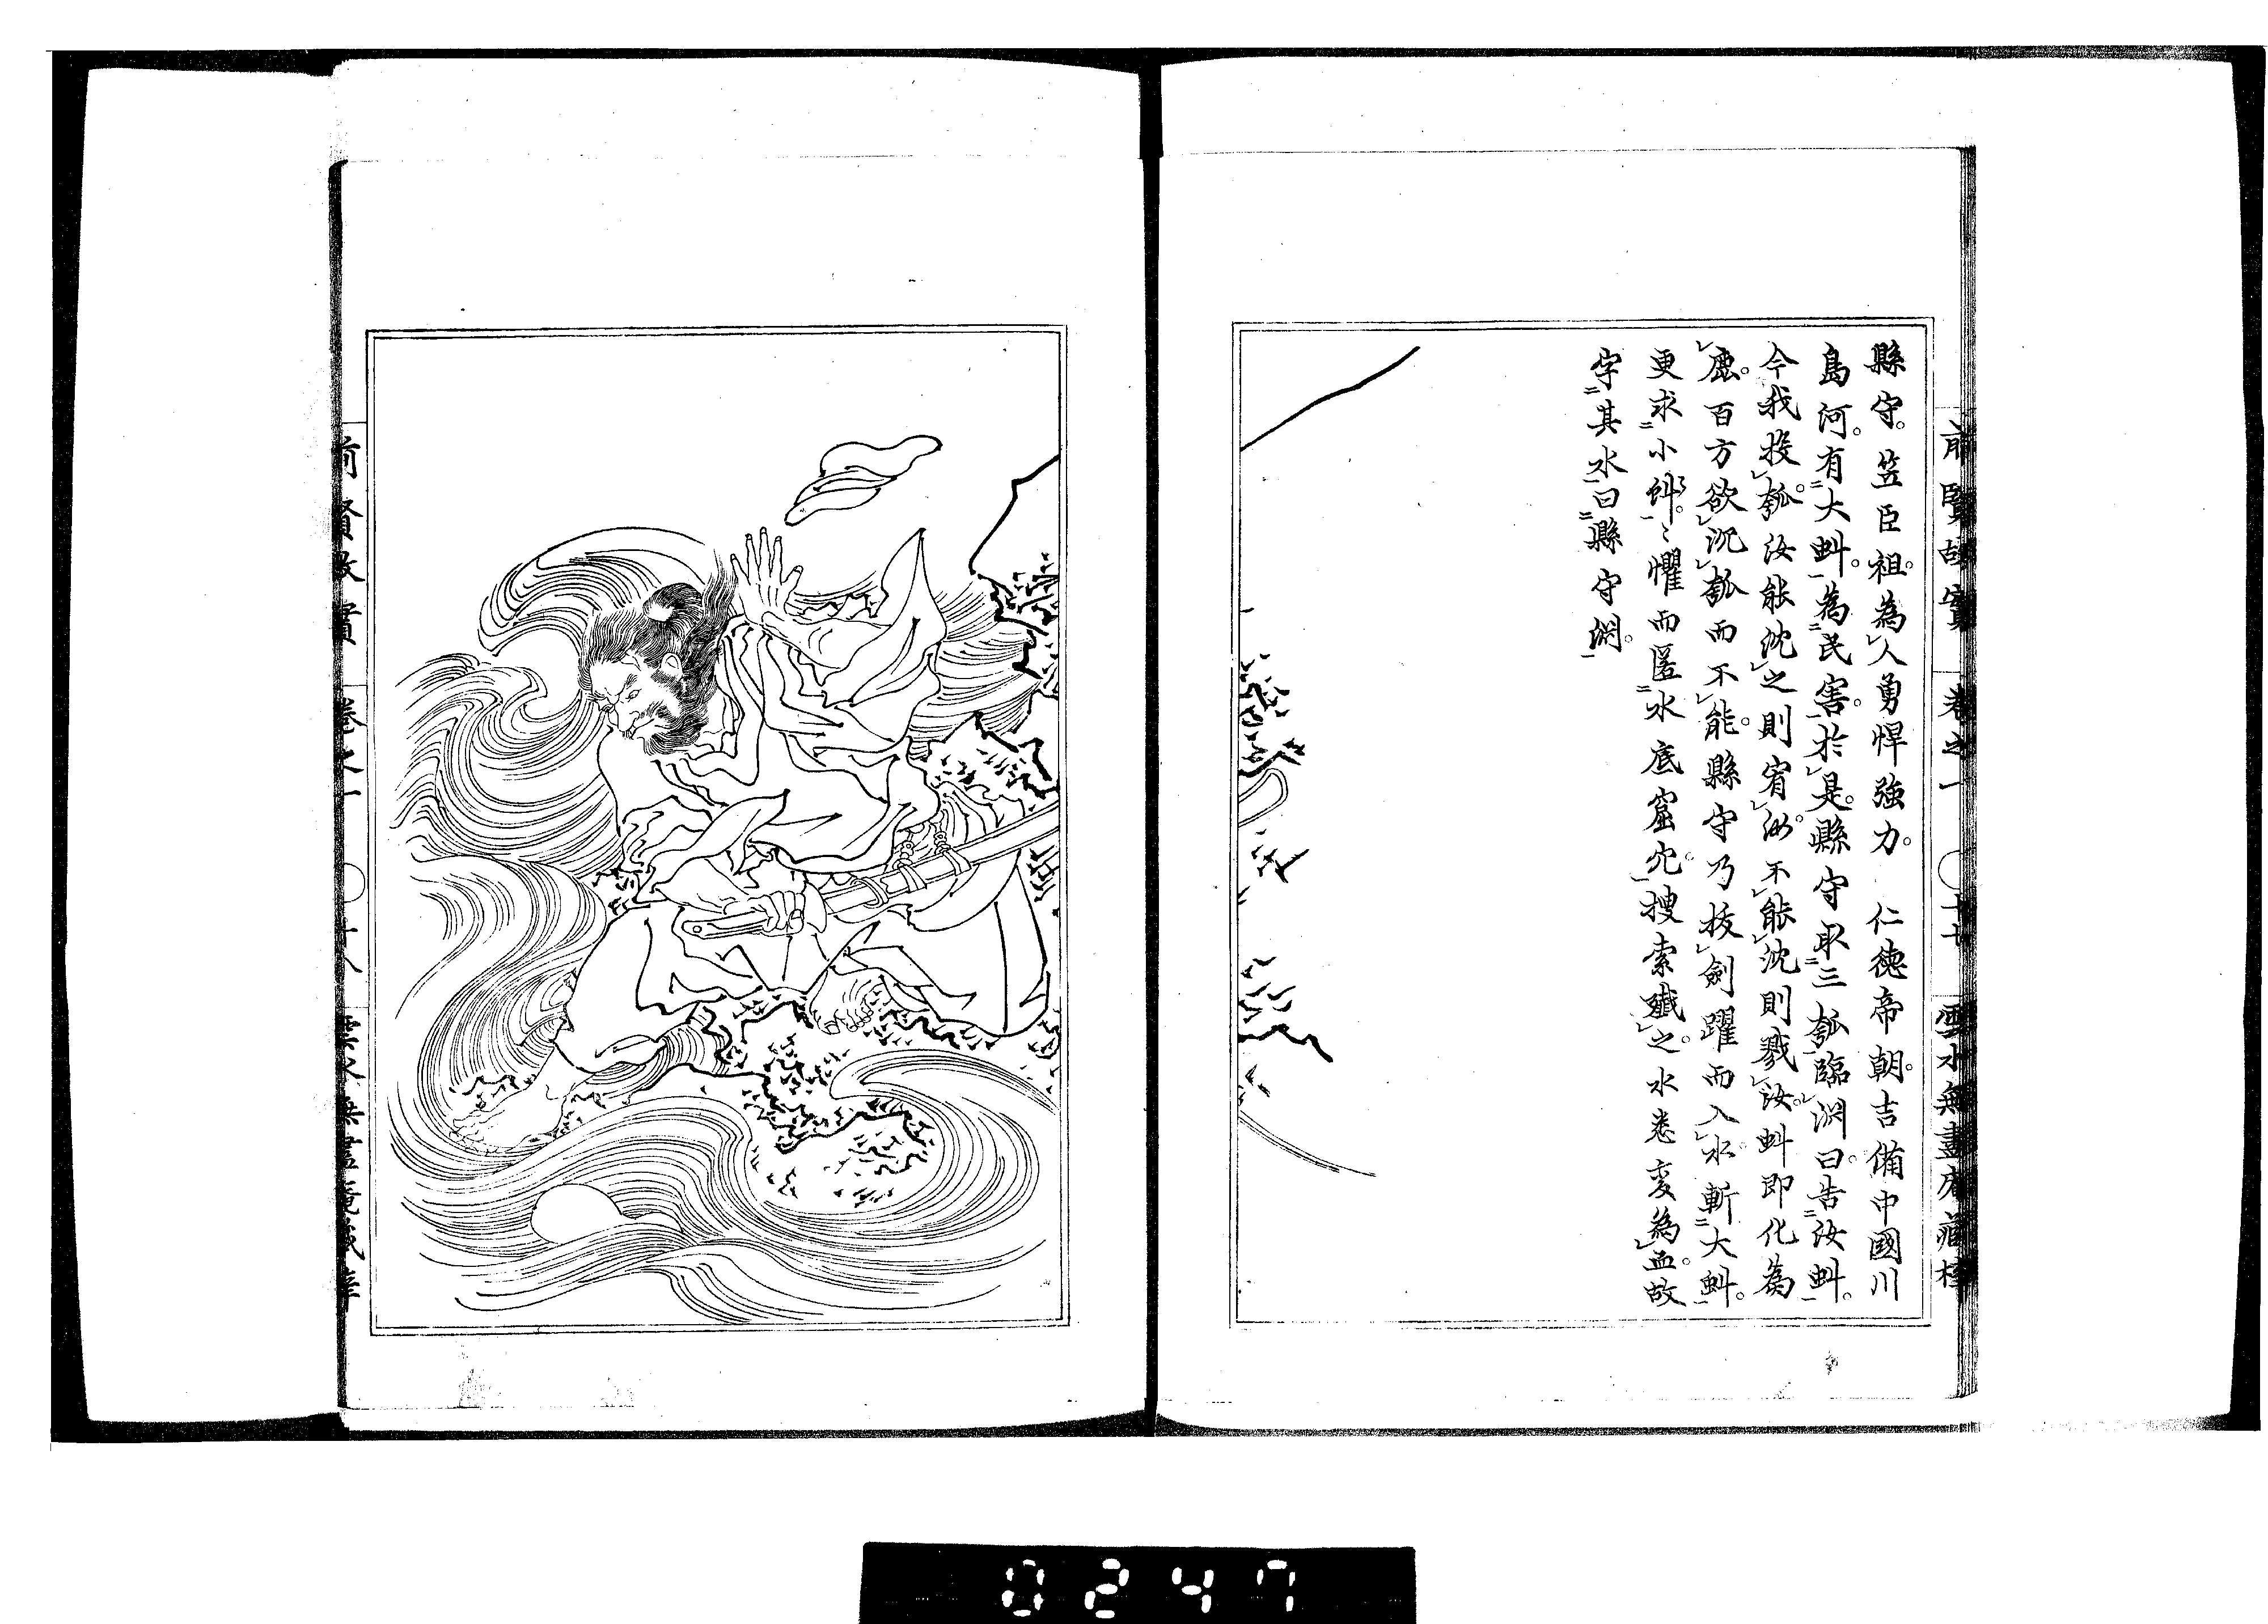 前賢故實 卷之一 ○十七 雲水無盡庵藏梓
縣守。笠臣祖。為人勇悍強力。 仁德帝朝。吉備中國川
島河。有大虯。為民害。於是。縣守取三瓠臨淵曰。告汝虯。
今我投瓠。汝能沈之則宥汝。不能沈則戮汝。虯即化為
鹿。百方欲沉瓠而不能。縣守乃拔劍躍而入水。斬大虯。
更求小虯。〻懼而匿水底窟穴。搜索殲之。水悉変為血。故
字其水曰縣守淵。
前賢故實 卷之一 ○十八
0247